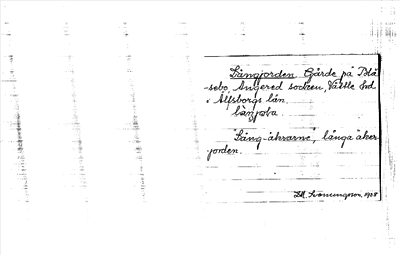 Långjorden. Gärde på Blå-
-sebo, Angered socken, Vättle hd
i Älfsborgs län.
"Lång-åkrarne", långa åker-
jorden.